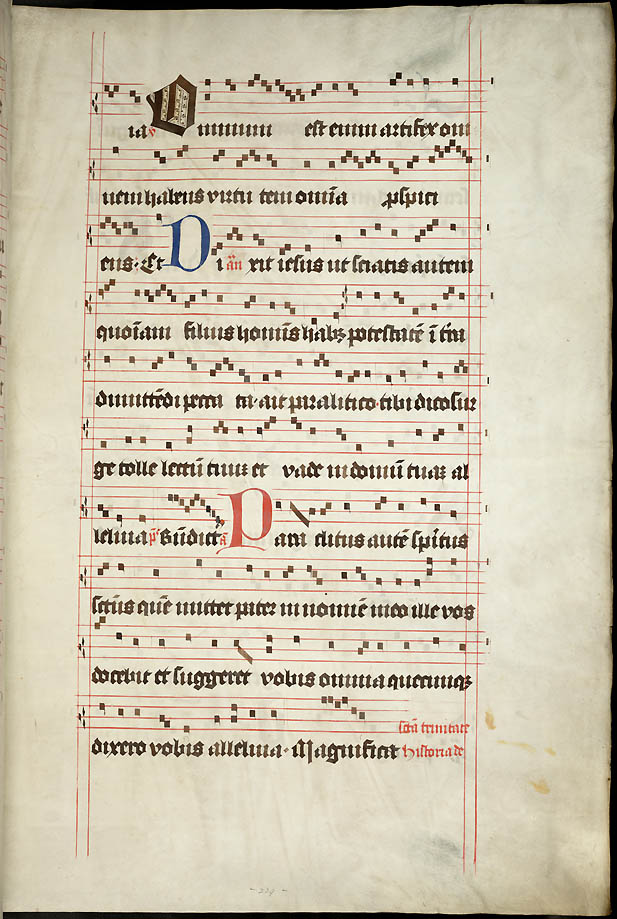 ia v Omnium est enim artifex om
nem habens virtu tem omnia pspici
ens. Et D i añ xit iesus ut sciatis autem
quoīam filius homīs habꝫ potestatē ī tr̄ra
dimittēdi pecca ta ait paralitico tibi dico sur
ge tolle lectū tuuꝫ et vade in domū tuaꝫ al
leluia pͣ Bn̄dictꝰ ā Para clitus autē sp̄itus
sctūs quē mittet pater in nomīe meo ille vos
docebit et suggeret vobis omnia quecunqꝫ
sctā trinitate
dixero vobis alleluia. Magnificat Historia de
224